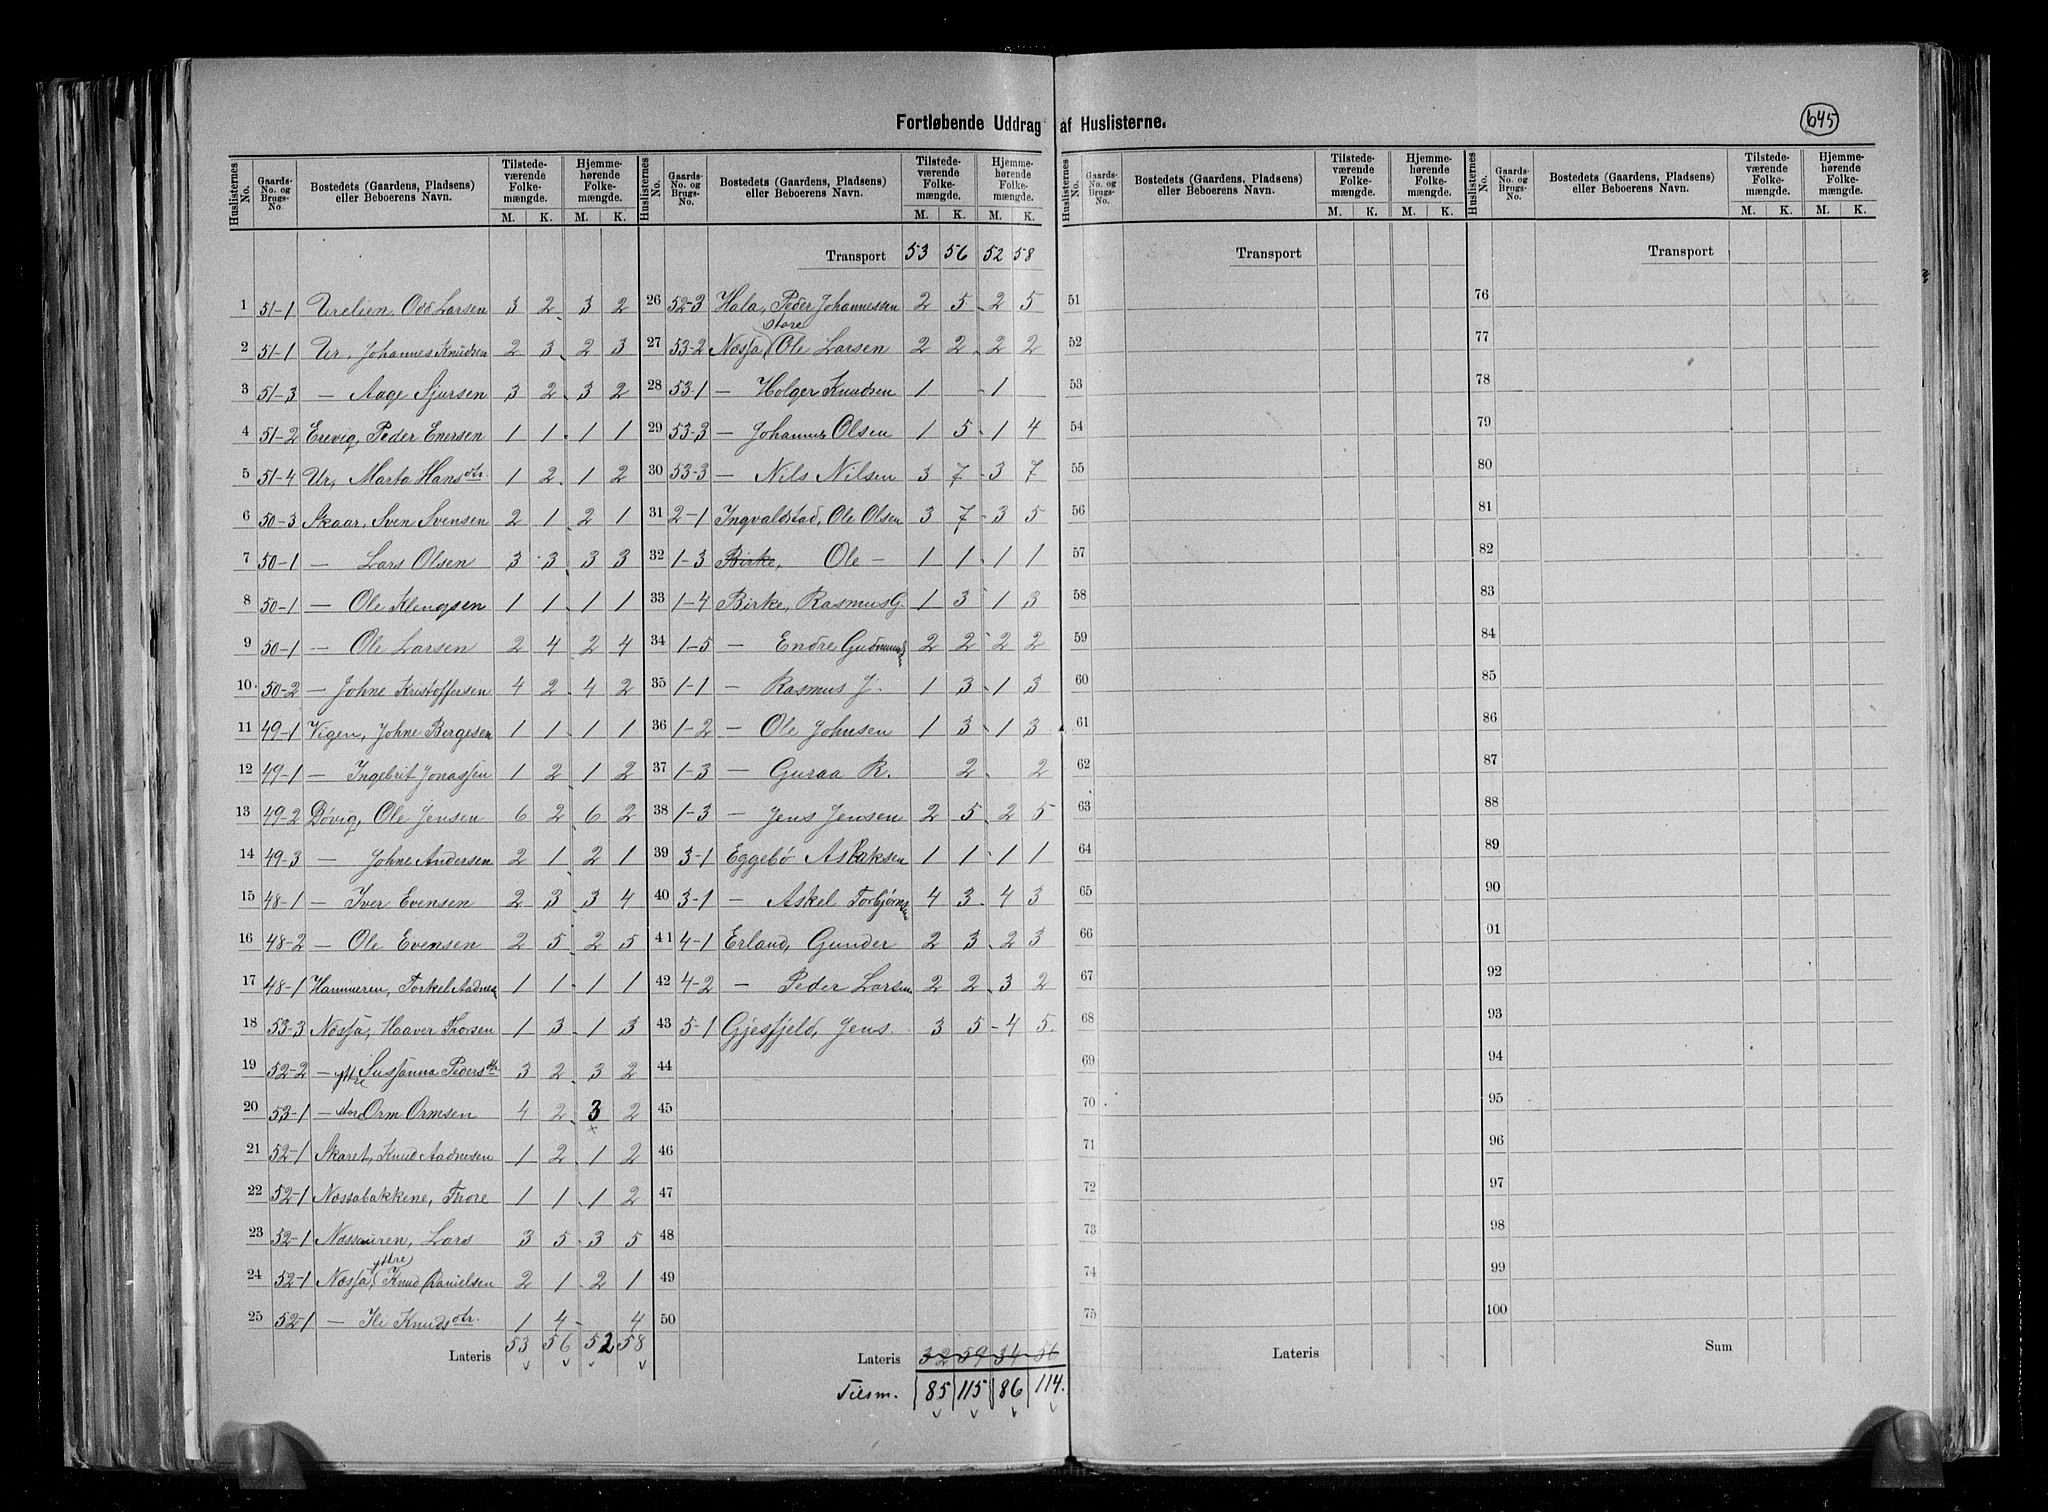 Fortløbende Uddrag af Huslisterne.
645
Huslisternes No. Gaards-No. og Brugs-No. Bostedets (Gaardens, Pladsens) eller Beboerens Navn. Tilstedeværende Folkemængde. M. K. Hjemmehørende Folkemængde. M. K.
1 51-1 Urelien, Odd Larsen 3 2 3 2
2 51-1 Ur, Johannes Knudsen 2 3 2 3
3 51-3 — Aage Sjursen 3 2 3 2
4 51-2 Erevig, Peder Enersen 1 1 1 1
5 51-4 Ur, Marta Hansdtr. 1 2 1 2
6 50-3 Skaar, Sven Svensen 2 1 2 1
7 50-1 — Lars Olsen 3 3 3 3
8 50-1 — Ole Klengsen 1 1 1 1
9 50-1 — Ole Larsen 2 4 2 4
10. 50-2 — Johne Kristoffersen 4 2 4 2
11 49-1 Vigen, Johne Bergesen 1 1 1 1
12 49-1 — Ingebrit Jonassen 1 2 1 2
13 49-2 Døvig, Ole Jensen 6 2 6 2
14 49-3 — Johne Andersen 2 1 2 1
15 48-1 — Iver Evensen 2 3 3 4
16 48-2 — Ole Evensen 2 5 2 5
17 48-1 Hammeren, Torkel Aadnes 1 1 1 1
18 53-3 Næssa, Haaver Thorsen 1 3 1 3
19 52-2 — ytre Sussanna Pedersdtr 3 2 3 2
20 53-1 — store Orm Ormsen 4 2 3 2
x
21 52-1 Skaret, Knud Aadnesen 1 2 1 2
22 52-1 Næssabakkene, Thore 1 1 1 2
23 52-1 Næssauren, Lars 3 5 3 5
24 52-1 Næssa, ytre Knud Danielsen 2 1 2 1
25 52-1 — Ili Knudsdtr. 1 4 - 4
Lateris 53 56 52 58
Huslisternes No. Gaards-No. og Brugs-No. Bostedets (Gaardens, Pladsens) eller Beboerens Navn. Tilstedeværende Folkemængde. M. K. Hjemmehørende Folkemængde. M. K.
Transport 53 56 52 58
26 52-3 Hala, Peder Johannessen 2 5 2 5
27 53-2 Næssa, store Ole Larsen 2 2 2 2
28 53-1 — Holger Knudsen 1 1
29 53-3 — Johannes Olsen 1 5 1 4
30 53-3 — Nils Nilsen 3 7 3 7
31 2-1 Ingvaldstad, Ole Olsen 3 7 3 5
32 1-3 Birke, Ole — 1 1 1 1
33 1-4 Birke, Rasmus G. 1 3 1 3
34 1-5 — Endre Gudmunds 2 2 2 2
35 1-1 — Rasmus J. 1 3 1 3
36 1-2 — Ole Johnsen 1 3 1 3
37 1-3 — Guraa R. 2 2
38 1-3 — Jens Jensen 2 5 2 5
39 3-1 Eggebø Aslaksen 1 1 1 1
40 3-1 — Askel Torbjørnsen 4 3 4 3
41 4-1 Erland, Gunder 2 3 2 3
42 4-2 — Peder Larsen 2 2 3 2
43 5-1 Gjesfjeld, Jens. 3 5 4 5.
44
45
46
47
48
49
50
Lateris 32 59 34 56
Tilsm. 85 115 86 114.
Huslisternes No. Gaards-No. og Brugs-No. Bostedets (Gaardens, Pladsens) eller Beboerens Navn. Tilstedeværende Folkemængde. M. K. Hjemmehørende Folkemængde. M. K.
Transport
51
52
53
54
55
56
57
58
59
60
61
62
63
64
65
66
67
68
69
70
71
72
73
74
75
Lateris
Huslisternes No. Gaards-No. og Brugs-No. Bostedets (Gaardens, Pladsens) eller Beboerens Navn. Tilstedeværende Folkemængde. M. K. Hjemmehørende Folkemængde. M. K.
Transport
76
77
78
79
80
81
82
83
84
85
86
87
88
89
90
91
92
93
94
95
96
97
98
99
100
Sum